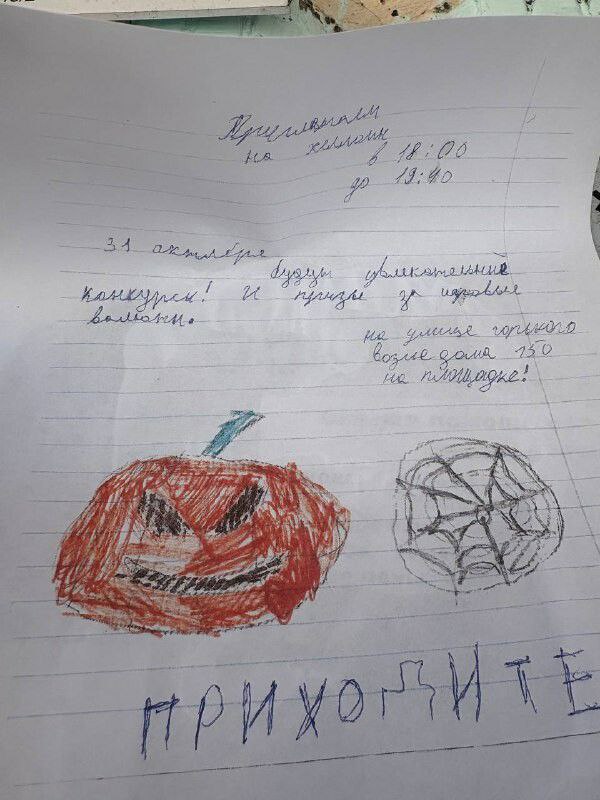 Приглашаем
на хеллоин
в 18:00
до 19:40
31 октября
будуы увлекательние
конкурсы! И призы за игровые
волюты.
на улице горького
возле дома 150
на площадке!
ПРИХОДИТЕ